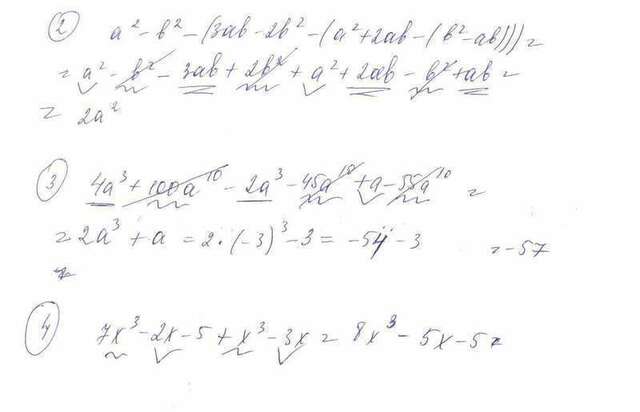 2 a² - b² - (3ab - 2b² - (a² + 2ab - (b² - ab))) =
= a² - b² - 3ab + 2b² + a² + 2ab - b² + ab =
= 2a²
3 4a³ + 100a¹⁰ - 2a³ - 45a¹⁰ + a - 55a¹⁰ =
= 2a³ + a = 2 · (-3)³ - 3 = -54 - 3 = -57
4 7x³ - 2x - 5 + x³ - 3x = 8x³ - 5x - 5